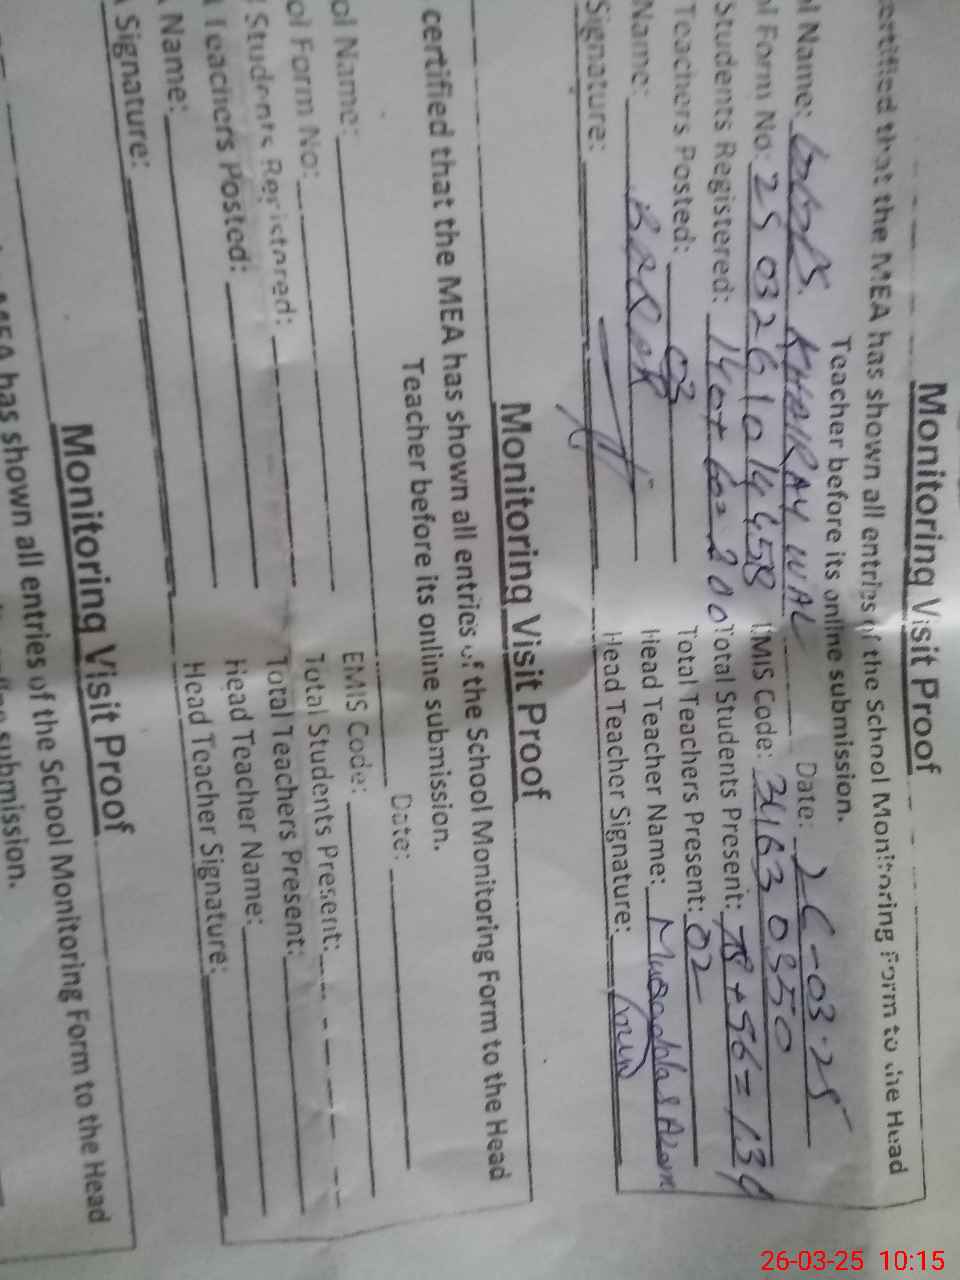 Monitoring Visit Proof
certified that the MEA has shown all entries of the School Monitoring Form to the Head
Teacher before its online submission.
l Name: KHAIRAY WAL Date: 26-03-25
l Form No: 25 03261014458 EMIS Code: 31630350
Students Registered: 140+60=200 Total Students Present: 78+56=134
Teachers Posted: 03 Total Teachers Present: 02
Name: BABAR Head Teacher Name: Alam
Signature: Head Teacher Signature:
Monitoring Visit Proof
certified that the MEA has shown all entries of the School Monitoring Form to the Head
Teacher before its online submission.
ol Name: Date:
ol Form No: EMIS Code:
l Students Registered: Total Students Present:
l Teachers Posted: Total Teachers Present:
A Name: Head Teacher Name:
A Signature: Head Teacher Signature:
Monitoring Visit Proof
MEA has shown all entries of the School Monitoring Form to the Head
submission.
26-03-25 10:15